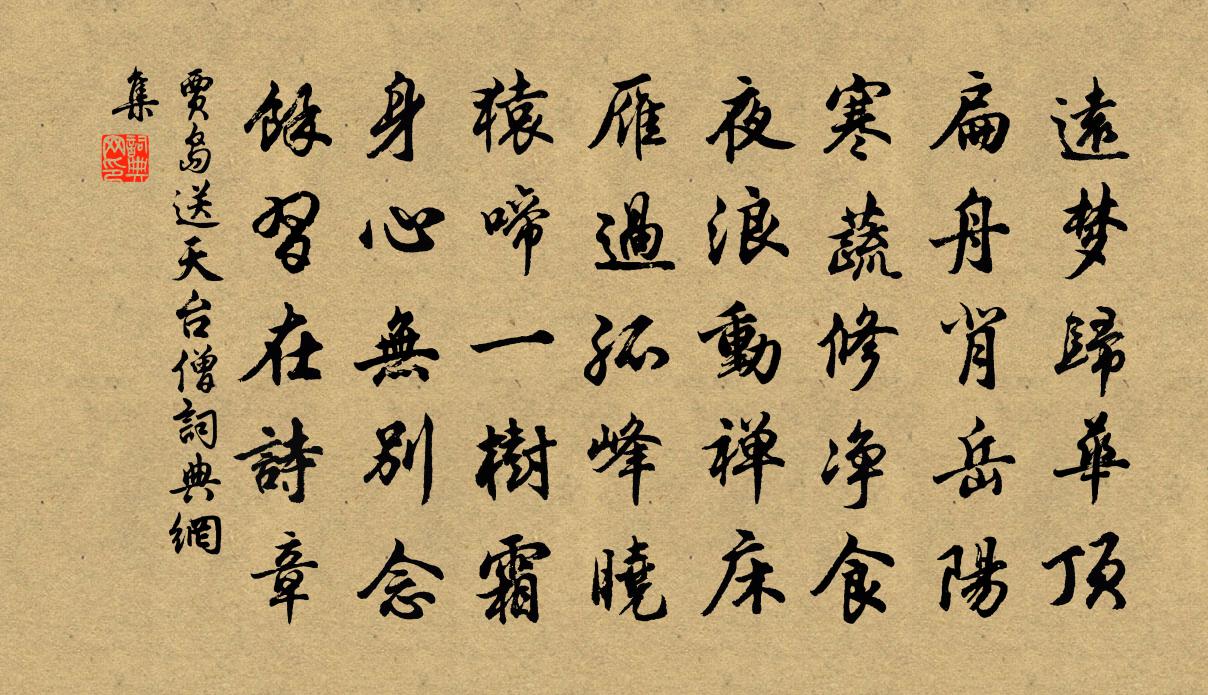 遠梦歸華頂
扁舟肖岳陽
寒蔬修净食
夜浪動禅床
雁過孤峰曉
猿啼一樹霜
身心無別念
餘習在詩章
賈島送天台僧詞典網
集
詞典
网印